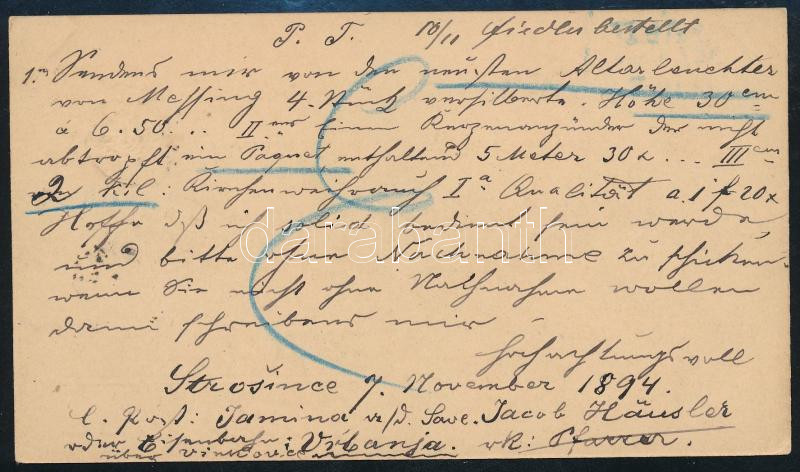 P. T. 10/11 fiedler bestellt
1.) Sendens mir von den neusten Altarleuchter
von Messing 4. Stück versilberte. Höhe 30 cm
á 6.50... II einen Kerzenanzünder der nicht
abtropft ein Paquet enthaltend 5 Meter 30 x... III
2 Kil: Kirchenweihrauch Iª Qualität a. 1 f 20 x
Hoffe dß ich solid bedient sein werde,
und bitte ohne Nachnahme zu schicken
wenn Sie nicht ohne Nachnahme wollen
dann schreibens mir
hochachtungsvoll
Strošince 7. November 1894.
l. Post: Jamina a/d. Save. Jacob Häusler
oder Eisenbahn: Vrbanja. rk: Pfarrer.
über Vinkovce
darabanth